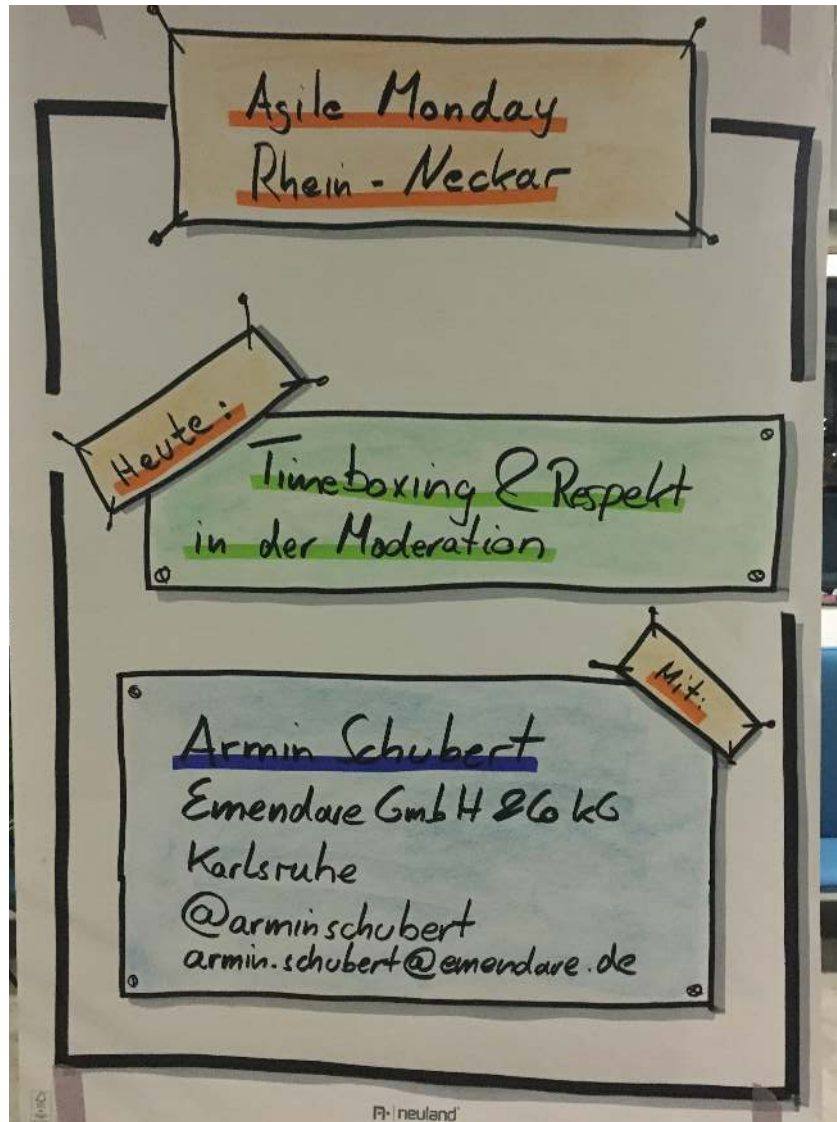 Agile Monday
Rhein - Neckar
Heute:
Timeboxing & Respekt
in der Moderation
Mit:
Armin Schubert
Emendare GmbH & Co KG
Karlsruhe
@arminschubert
armin.schubert@emendare.de
neuland